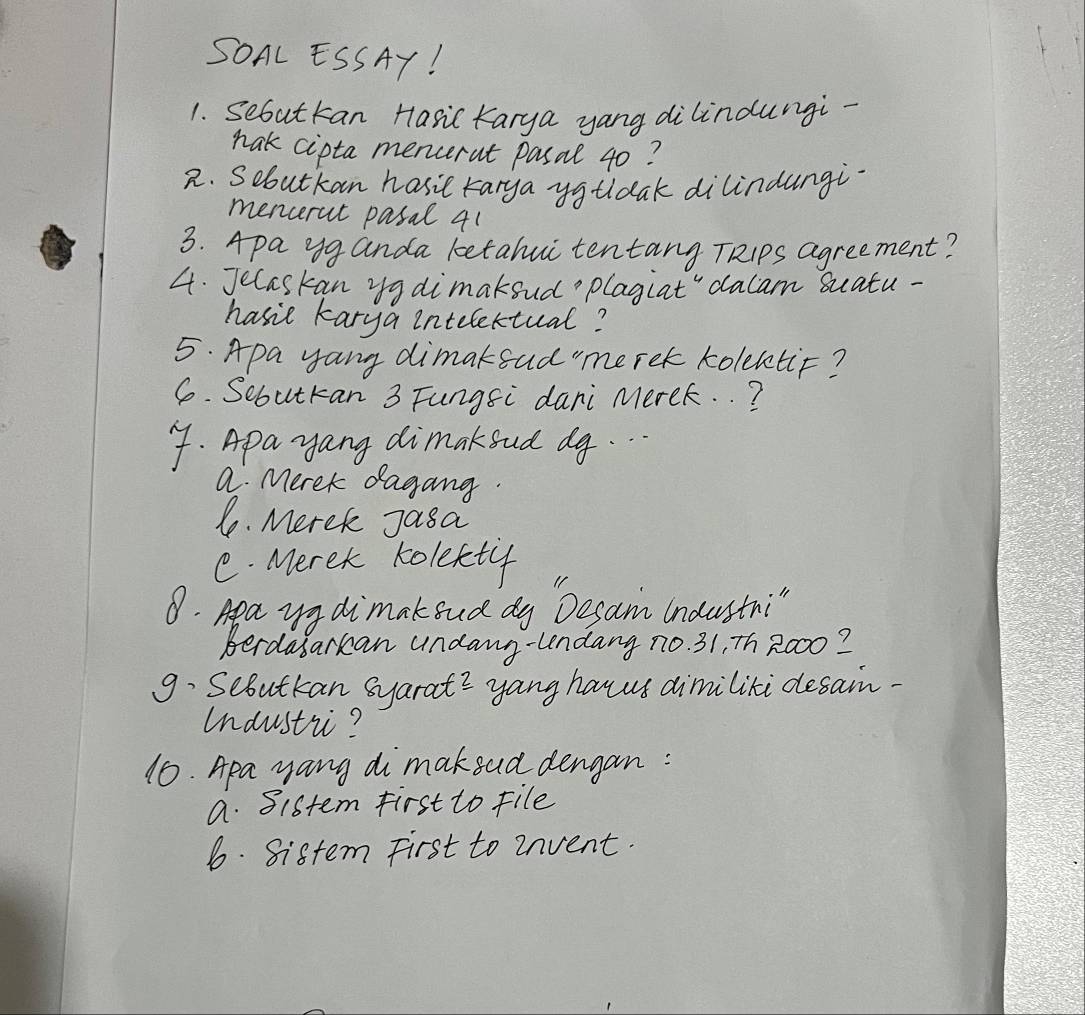 SOAL ESSAY!
1. Sebutkan Hasil Karya yang dilindungi -
hak cipta menurut Pasal 40 ?
2. Sebutkan hasil karya yg tidak dilindungi -
menurut pasal 41
3. Apa yg anda ketahui tentang TRIPS agreement?
4. Jelaskan yg dimaksud "Plagiat" dalam suatu -
hasil karya intelektual ?
5. Apa yang dimaksud "merek kolektif ?
6. Sebutkan 3 Fungsi dari Merek .. ?
7. Apa yang dimaksud dg ...
a. Merek dagang.
b. Merek Jasa
c. Merek kolektif
8. Apa yg dimaksud dg "Desain Industri"
berdasarkan undang-undang no. 31, Th 2000 ?
9. Sebutkan syarat² yang harus dimiliki desain -
Industri ?
10. Apa yang di maksud dengan :
a. Sistem First to File
b. Sistem First to invent.